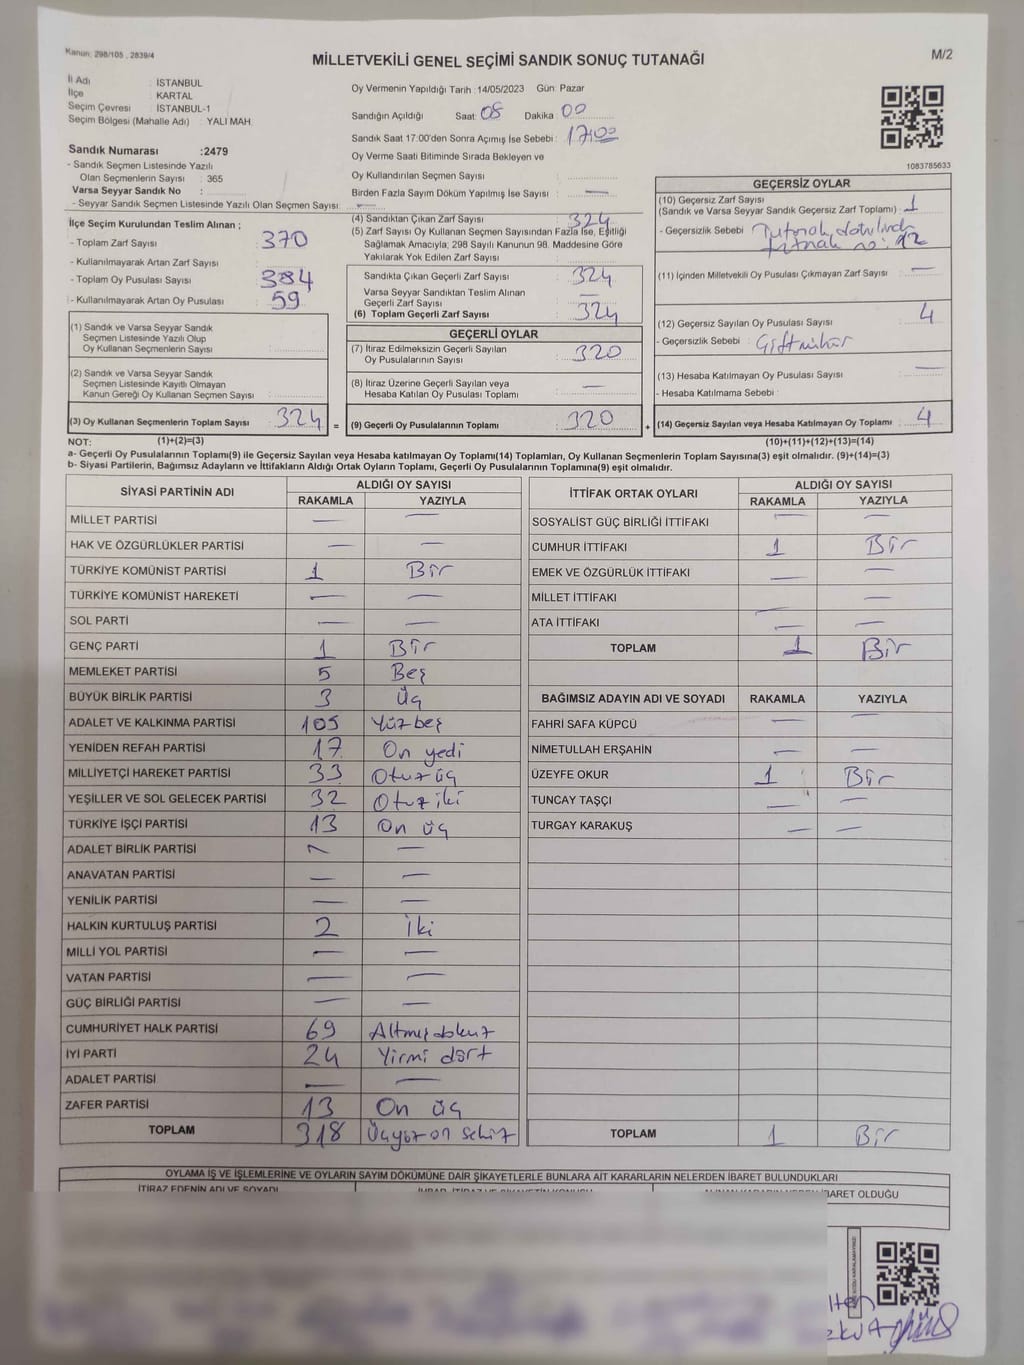 Kanun: 298/105 , 2839/4
MİLLETVEKİLİ GENEL SEÇİMİ SANDIK SONUÇ TUTANAĞI
M/2
İl Adı : İSTANBUL
İlçe : KARTAL
Seçim Çevresi : İSTANBUL-1
Seçim Bölgesi (Mahalle Adı) : YALI MAH.
Oy Vermenin Yapıldığı Tarih :14/05/2023 Gün: Pazar
Sandığın Açıldığı Saat: 08 Dakika: 00
Sandık Saat 17:00'den Sonra Açılmış İse Sebebi: 17:00
Oy Verme Saati Bitiminde Sırada Bekleyen ve
Oy Kullandırılan Seçmen Sayısı :
Birden Fazla Sayım Döküm Yapılmış İse Sayısı : —
1083785633
Sandık Numarası :2479
- Sandık Seçmen Listesinde Yazılı
Olan Seçmenlerin Sayısı : 365
Varsa Seyyar Sandık No :
- Seyyar Sandık Seçmen Listesinde Yazılı Olan Seçmen Sayısı: —
İlçe Seçim Kurulundan Teslim Alınan ;
- Toplam Zarf Sayısı : 370
- Kullanılmayarak Artan Zarf Sayısı :
- Toplam Oy Pusulası Sayısı : 384
- Kullanılmayarak Artan Oy Pusulası : 59
(1) Sandık ve Varsa Seyyar Sandık
Seçmen Listesinde Yazılı Olup
Oy Kullanan Seçmenlerin Sayısı :
(2) Sandık ve Varsa Seyyar Sandık
Seçmen Listesinde Kayıtlı Olmayan
Kanun Gereği Oy Kullanan Seçmen Sayısı :
(3) Oy Kullanan Seçmenlerin Toplam Sayısı : 324 =
(4) Sandıktan Çıkan Zarf Sayısı : 324
(5) Zarf Sayısı Oy Kullanan Seçmen Sayısından Fazla İse, Eşitliği
Sağlamak Amacıyla; 298 Sayılı Kanunun 98. Maddesine Göre
Yakılarak Yok Edilen Zarf Sayısı :
Sandıkta Çıkan Geçerli Zarf Sayısı : 324
Varsa Seyyar Sandıktan Teslim Alınan
Geçerli Zarf Sayısı : —
(6) Toplam Geçerli Zarf Sayısı : 324
GEÇERLİ OYLAR
(7) İtiraz Edilmeksizin Geçerli Sayılan
Oy Pusulalarının Sayısı : 320
(8) İtiraz Üzerine Geçerli Sayılan veya
Hesaba Katılan Oy Pusulası Toplamı : —
(9) Geçerli Oy Pusulalarının Toplamı : 320 +
GEÇERSİZ OYLAR
(10) Geçersiz Zarf Sayısı
(Sandık ve Varsa Seyyar Sandık Geçersiz Zarf Toplamı) : 1
- Geçersizlik Sebebi : Tutanak
no: 12
(11) İçinden Milletvekili Oy Pusulası Çıkmayan Zarf Sayısı : —
(12) Geçersiz Sayılan Oy Pusulası Sayısı : 4
- Geçersizlik Sebebi : Çift mühür
(13) Hesaba Katılmayan Oy Pusulası Sayısı : —
- Hesaba Katılmama Sebebi :
(14) Geçersiz Sayılan veya Hesaba Katılmayan Oy Toplamı : 4
NOT: (1)+(2)=(3) (10)+(11)+(12)+(13)=(14)
a- Geçerli Oy Pusulalarının Toplamı(9) ile Geçersiz Sayılan veya Hesaba katılmayan Oy Toplamı(14) Toplamları, Oy Kullanan Seçmenlerin Toplam Sayısına(3) eşit olmalıdır. (9)+(14)=(3)
b- Siyasi Partilerin, Bağımsız Adayların ve İttifakların Aldığı Ortak Oyların Toplamı, Geçerli Oy Pusulalarının Toplamına(9) eşit olmalıdır.
SİYASİ PARTİNİN ADI ALDIĞI OY SAYISI
RAKAMLA YAZIYLA
MİLLET PARTİSİ — —
HAK VE ÖZGÜRLÜKLER PARTİSİ — —
TÜRKİYE KOMÜNİST PARTİSİ 1 Bir
TÜRKİYE KOMÜNİST HAREKETİ — —
SOL PARTİ — —
GENÇ PARTİ 1 Bir
MEMLEKET PARTİSİ 5 Beş
BÜYÜK BİRLİK PARTİSİ 3 Üç
ADALET VE KALKINMA PARTİSİ 105 Yüz beş
YENİDEN REFAH PARTİSİ 17 On yedi
MİLLİYETÇİ HAREKET PARTİSİ 33 Otuz üç
YEŞİLLER VE SOL GELECEK PARTİSİ 32 Otuz iki
TÜRKİYE İŞÇİ PARTİSİ 13 On üç
ADALET BİRLİK PARTİSİ — —
ANAVATAN PARTİSİ — —
YENİLİK PARTİSİ — —
HALKIN KURTULUŞ PARTİSİ 2 İki
MİLLİ YOL PARTİSİ — —
VATAN PARTİSİ — —
GÜÇ BİRLİĞİ PARTİSİ — —
CUMHURİYET HALK PARTİSİ 69 Altmış dokuz
İYİ PARTİ 24 Yirmi dört
ADALET PARTİSİ — —
ZAFER PARTİSİ 13 On üç
TOPLAM 318 Üçyüz on sekiz
İTTİFAK ORTAK OYLARI ALDIĞI OY SAYISI
RAKAMLA YAZIYLA
SOSYALİST GÜÇ BİRLİĞİ İTTİFAKI — —
CUMHUR İTTİFAKI 1 Bir
EMEK VE ÖZGÜRLÜK İTTİFAKI — —
MİLLET İTTİFAKI —
ATA İTTİFAKI — —
TOPLAM 1 Bir
BAĞIMSIZ ADAYIN ADI VE SOYADI RAKAMLA YAZIYLA
FAHRİ SAFA KÜPCÜ — —
NİMETULLAH ERŞAHİN — —
ÜZEYFE OKUR 1 Bir
TUNCAY TAŞÇI — —
TURGAY KARAKUŞ — —
TOPLAM 1 Bir
OYLAMA İŞ VE İŞLEMLERİNE VE OYLARIN SAYIM DÖKÜMÜNE DAİR ŞİKAYETLERLE BUNLARA AİT KARARLARIN NELERDEN İBARET BULUNDUKLARI
İTİRAZ EDENİN ADI VE SOYADI
İBARET OLDUĞU